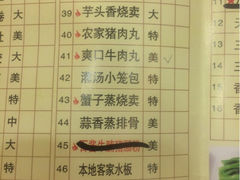 卷 大 39 芋头香烧卖 大
大 40 农家猪肉丸 大
美 41 爽口牛肉丸 美 √
美 42 灌汤小笼包 特
特 43 蟹子蒸烧卖 特
大 44 蒜香蒸排骨 美
美 45 美
特 46 本地客家水板 特